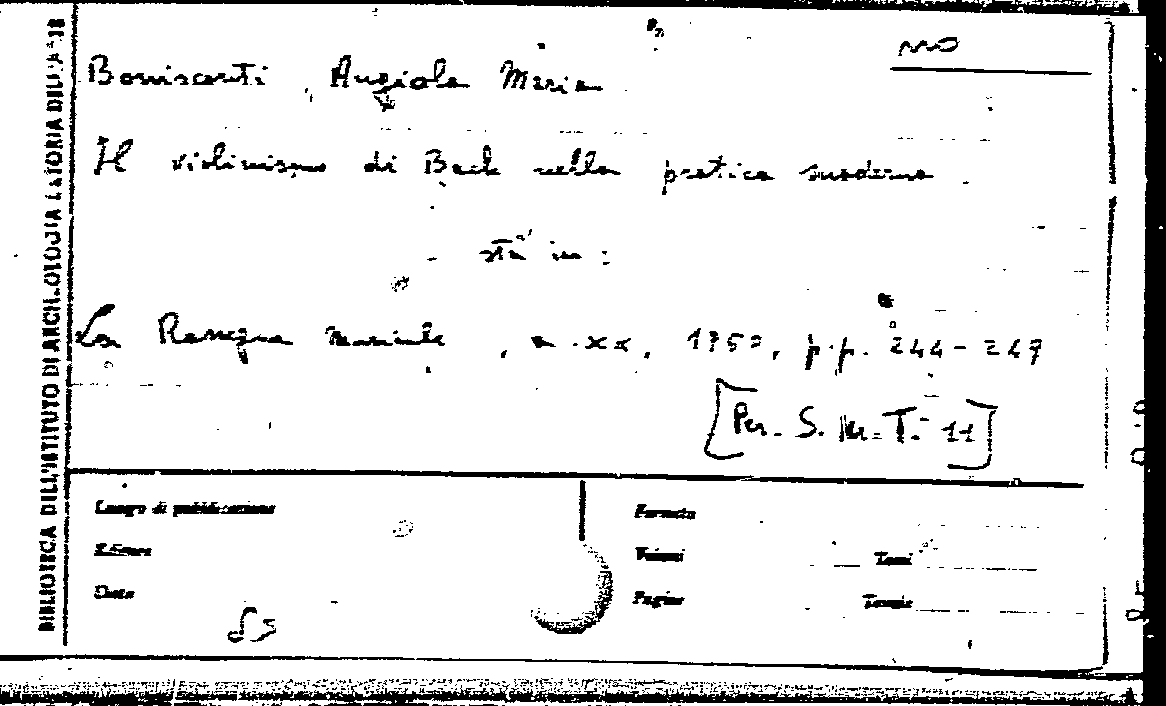 MO
Boniscanti, Angiola Maria
Il violinismo di Bach nella pratica moderna.
- sta in:
La Rassegna musicale, a. XX, 1950, p.p. 244-247
[Per. S. M. T. 11]
BIBLIOTECA DELL'ISTITUTO DI ARCHEOLOGIA E STORIA DELL'ARTE
Luogo di pubblicazione
Formato
Editore
Volumi
Tomi
Data
Pagine
Tavole